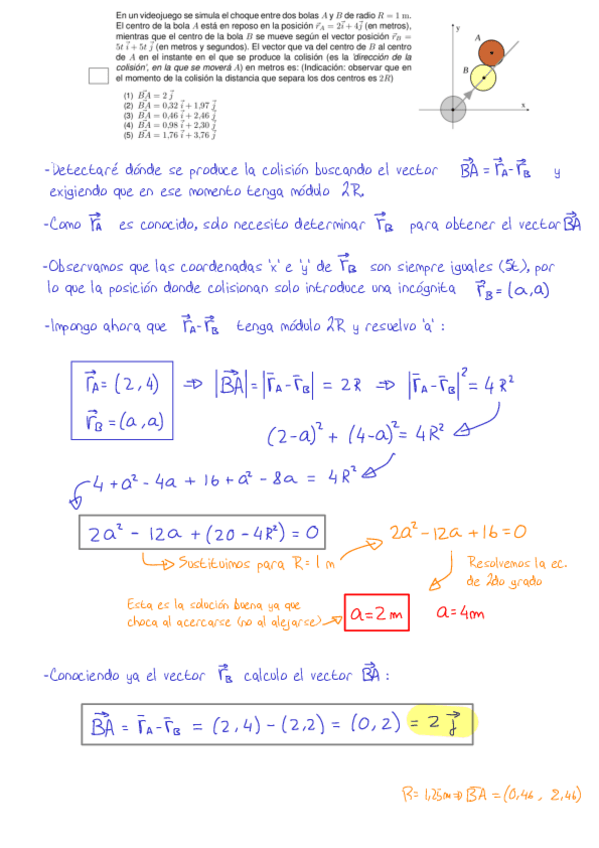 En un videojuego se simula el choque entre dos bolas A y B de radio R = 1 m.
El centro de la bola A está en reposo en la posición r⃗_A = 2i⃗ + 4j⃗ (en metros),
mientras que el centro de la bola B se mueve según el vector posición r⃗_B =
5t i⃗ + 5t j⃗ (en metros y segundos). El vector que va del centro de B al centro
de A en el instante en el que se produce la colisión (es la 'dirección de la
colisión', en la que se moverá A) en metros es: (Indicación: observar que en
el momento de la colisión la distancia que separa los dos centros es 2R)
(1) BA⃗ = 2 j⃗
(2) BA⃗ = 0,32 i⃗ + 1,97 j⃗
(3) BA⃗ = 0,46 i⃗ + 2,46 j⃗
(4) BA⃗ = 0,98 i⃗ + 2,30 j⃗
(5) BA⃗ = 1,76 i⃗ + 3,76 j⃗
y
A
B
x
-Detectaré dónde se produce la colisión buscando el vector BA⃗ = r⃗_A - r⃗_B y
exigiendo que en ese momento tenga módulo 2R.
-Como r⃗_A es conocido, solo necesito determinar r⃗_B para obtener el vector BA⃗
-Observamos que las coordenadas 'x' e 'y' de r⃗_B son siempre iguales (5t), por
lo que la posición donde colisionan solo introduce una incógnita r⃗_B = (a,a)
-Impongo ahora que r⃗_A - r⃗_B tenga módulo 2R y resuelvo 'a':
r⃗_A = (2,4) ⇒ |BA⃗| = |r̄_A - r̄_B| = 2R ⇒ |r̄_A - r̄_B|² = 4R²
r⃗_B = (a,a)
(2-a)² + (4-a)² = 4R²
4 + a² - 4a + 16 + a² - 8a = 4R²
2a² - 12a + (20 - 4R²) = 0
2a² - 12a + 16 = 0
Sustituimos para R = 1 m
Resolvemos la ec.
de 2do grado
Esta es la solución buena ya que
choca al acercarse (no al alejarse)
a = 2 m
a = 4m
-Conociendo ya el vector r⃗_B calculo el vector BA⃗:
BA⃗ = r̄_A - r̄_B = (2,4) - (2,2) = (0,2) = 2 j⃗
R = 1,25m ⇒ BA⃗ = (0,46 , 2,46)